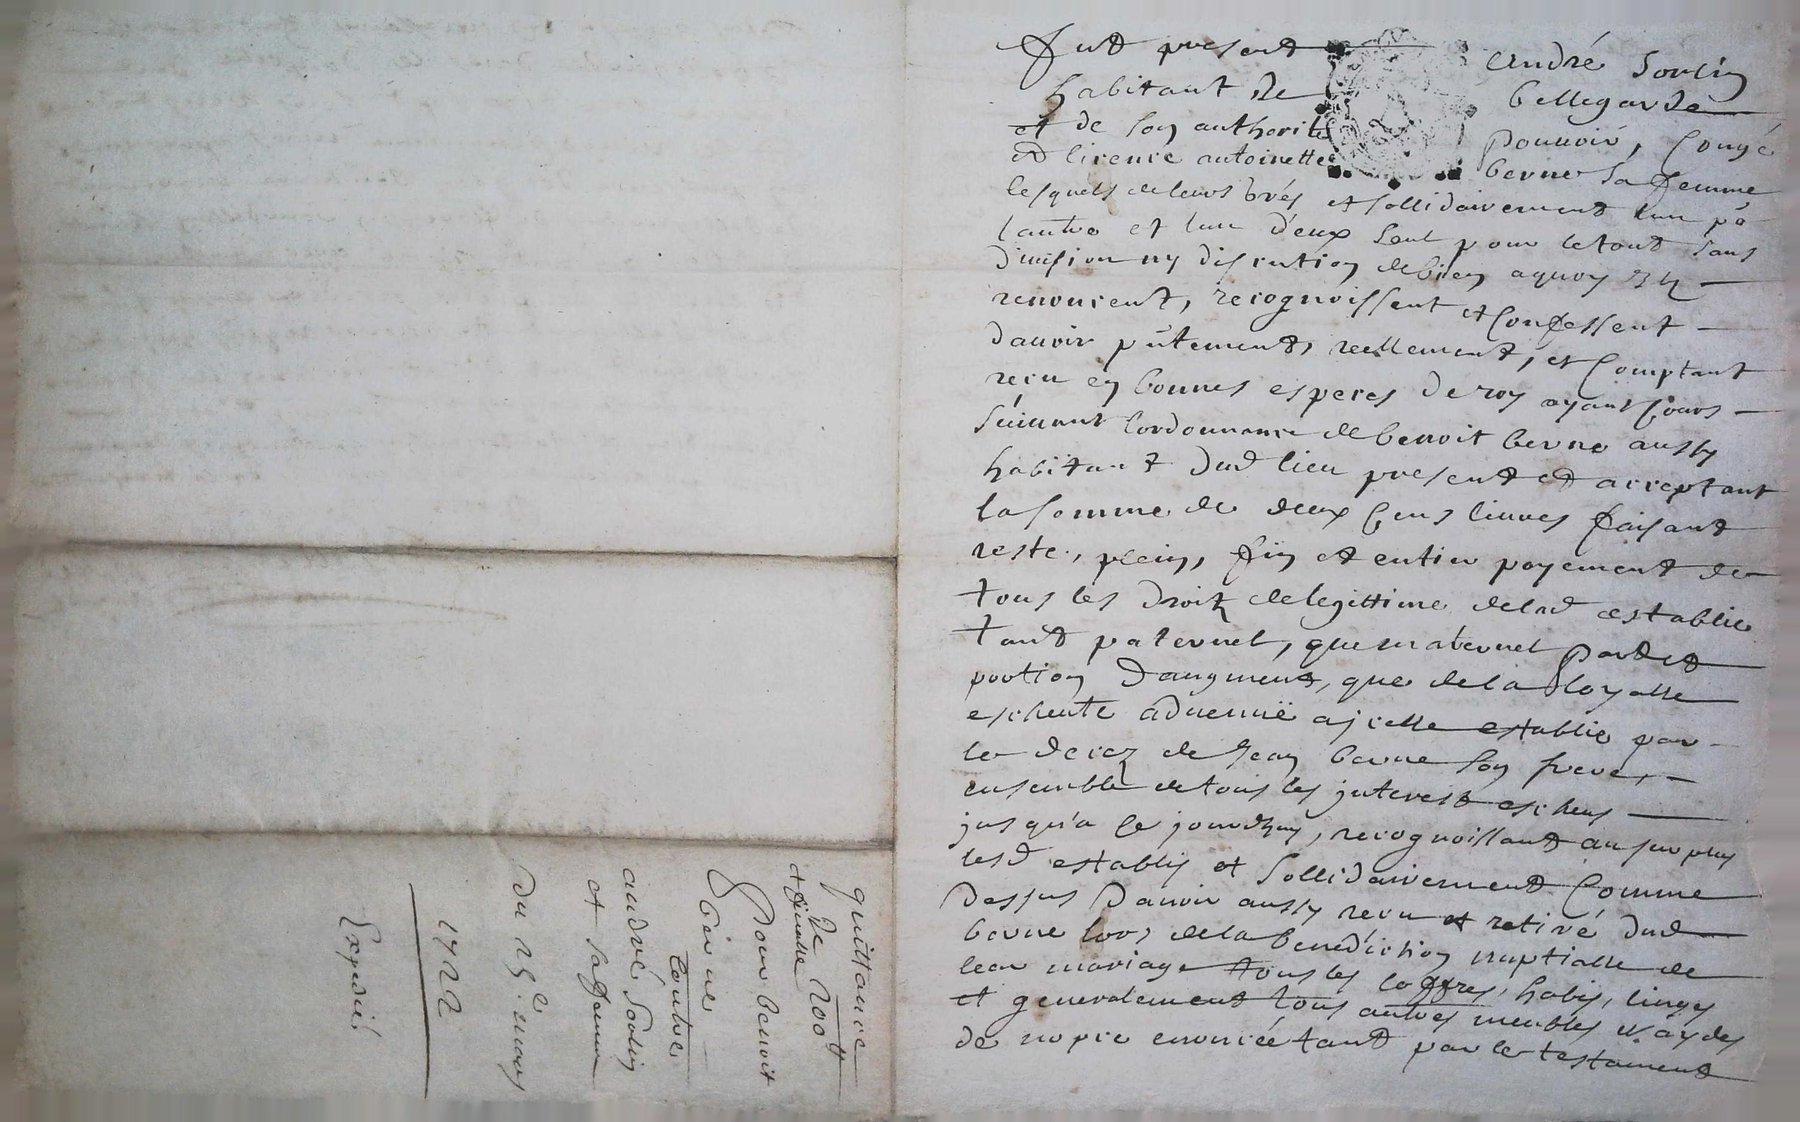 quittance
de 200ᵗᵗ
et quittance
Pour benoit
Berne
Contre
andré Sorlin
et sa femme
Du 25ᵉ mars
1722
Expedié
fut present andré Sorlin
habitant de bellegarde
et de son authorité pouuoir, Congé
et licence antoinette berne sa femme
lesquels de leurs grés et sollidairement lun pō
lautre et lun d'eux seul pour letout sans
diuision ny discution debien aquoy ilz
renoncent, recognoissent et Confessent
dauoir pñtement, reellement, et Comptant
reçu en bonnes especes de roy ayant Cours
suiuant lordonnance de benoit berne aussy
habitant dud lieu present et acceptant
la somme de deux Cens liures faisant
reste, plein, fin et entier payement de
tous les droitz de legittime delad establie
tant paternel, que maternel part et
portion daugment, que de la loyalle
escheute aduenuë a jcelle establie par
le decez de Jean berne son frere,
ensemble de tous les jnterest escheus
jusqu'a Ce jourdhuy, recognoissant au surplus
lesd establis et Sollidairement Comme
dessus Dauoir aussy reçu et retiré dud
berne lors de la benediction nuptialle de
leur mariage tous les coffres, habis, linges
et generalement tous autres meubles
de nopce enoncée tant par le testament